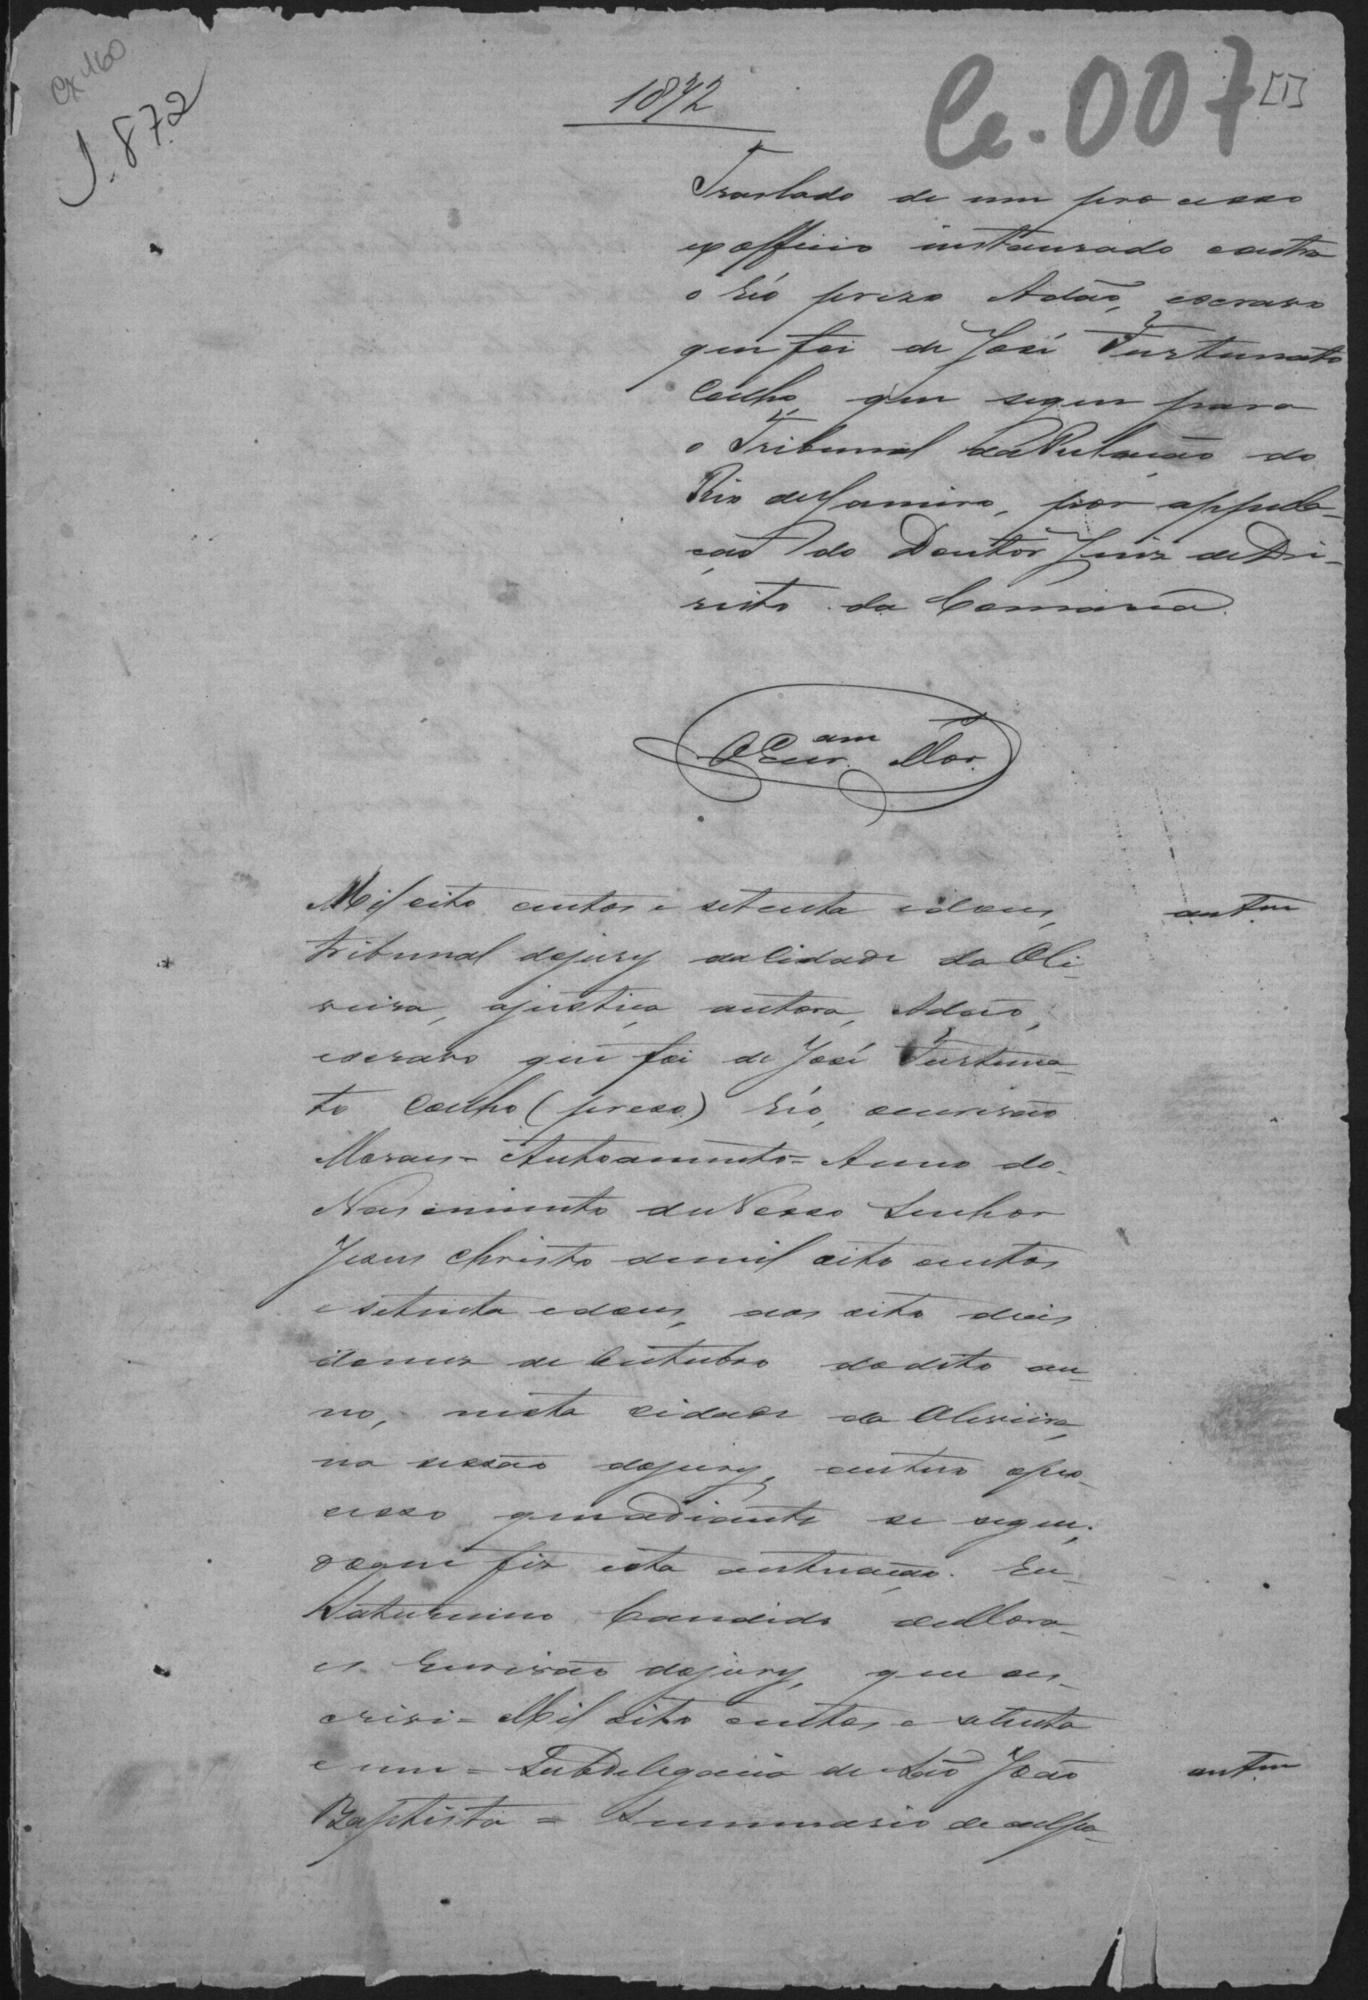 Cx 160
J. 872
1872
Ce. 007 [1]
Traslado de um processo
ex officio instaurado contra
o réo prezo Adão, escravo
que foi de José Furtunato
Coelho, que segue para
o Tribunal da Relação do
Rio de Janeiro, por appella-
ção do Doutor Juiz de Di-
reito da Comarca.
O Escr.am Mor.
Mil oito centos e setenta e dous,
autm
tribunal do jury da Cidade da Oli-
veira, a justiça, autora, Adão,
escravo que foi de José Furtuna-
to Coelho (prezo) réo, escrivão
Moraes = Autoamento = Anno do
Nascimento de Nosso Senhor
Jesus Christo de mil oito centos
e setenta e dous, aos oito dias
do mez de Outubro do dito an-
no, nesta cidade da Oliveira,
na sessão do jury, autuo o pro-
cesso que adiante se segue;
do que fiz esta autuação. Eu
Saturnino Candido de Mora-
es Escrivão do jury, que es-
crivi = Mil oito centos e setenta
e um = Subdelegacia de São João
autm
Baptista = Summario de culpa-